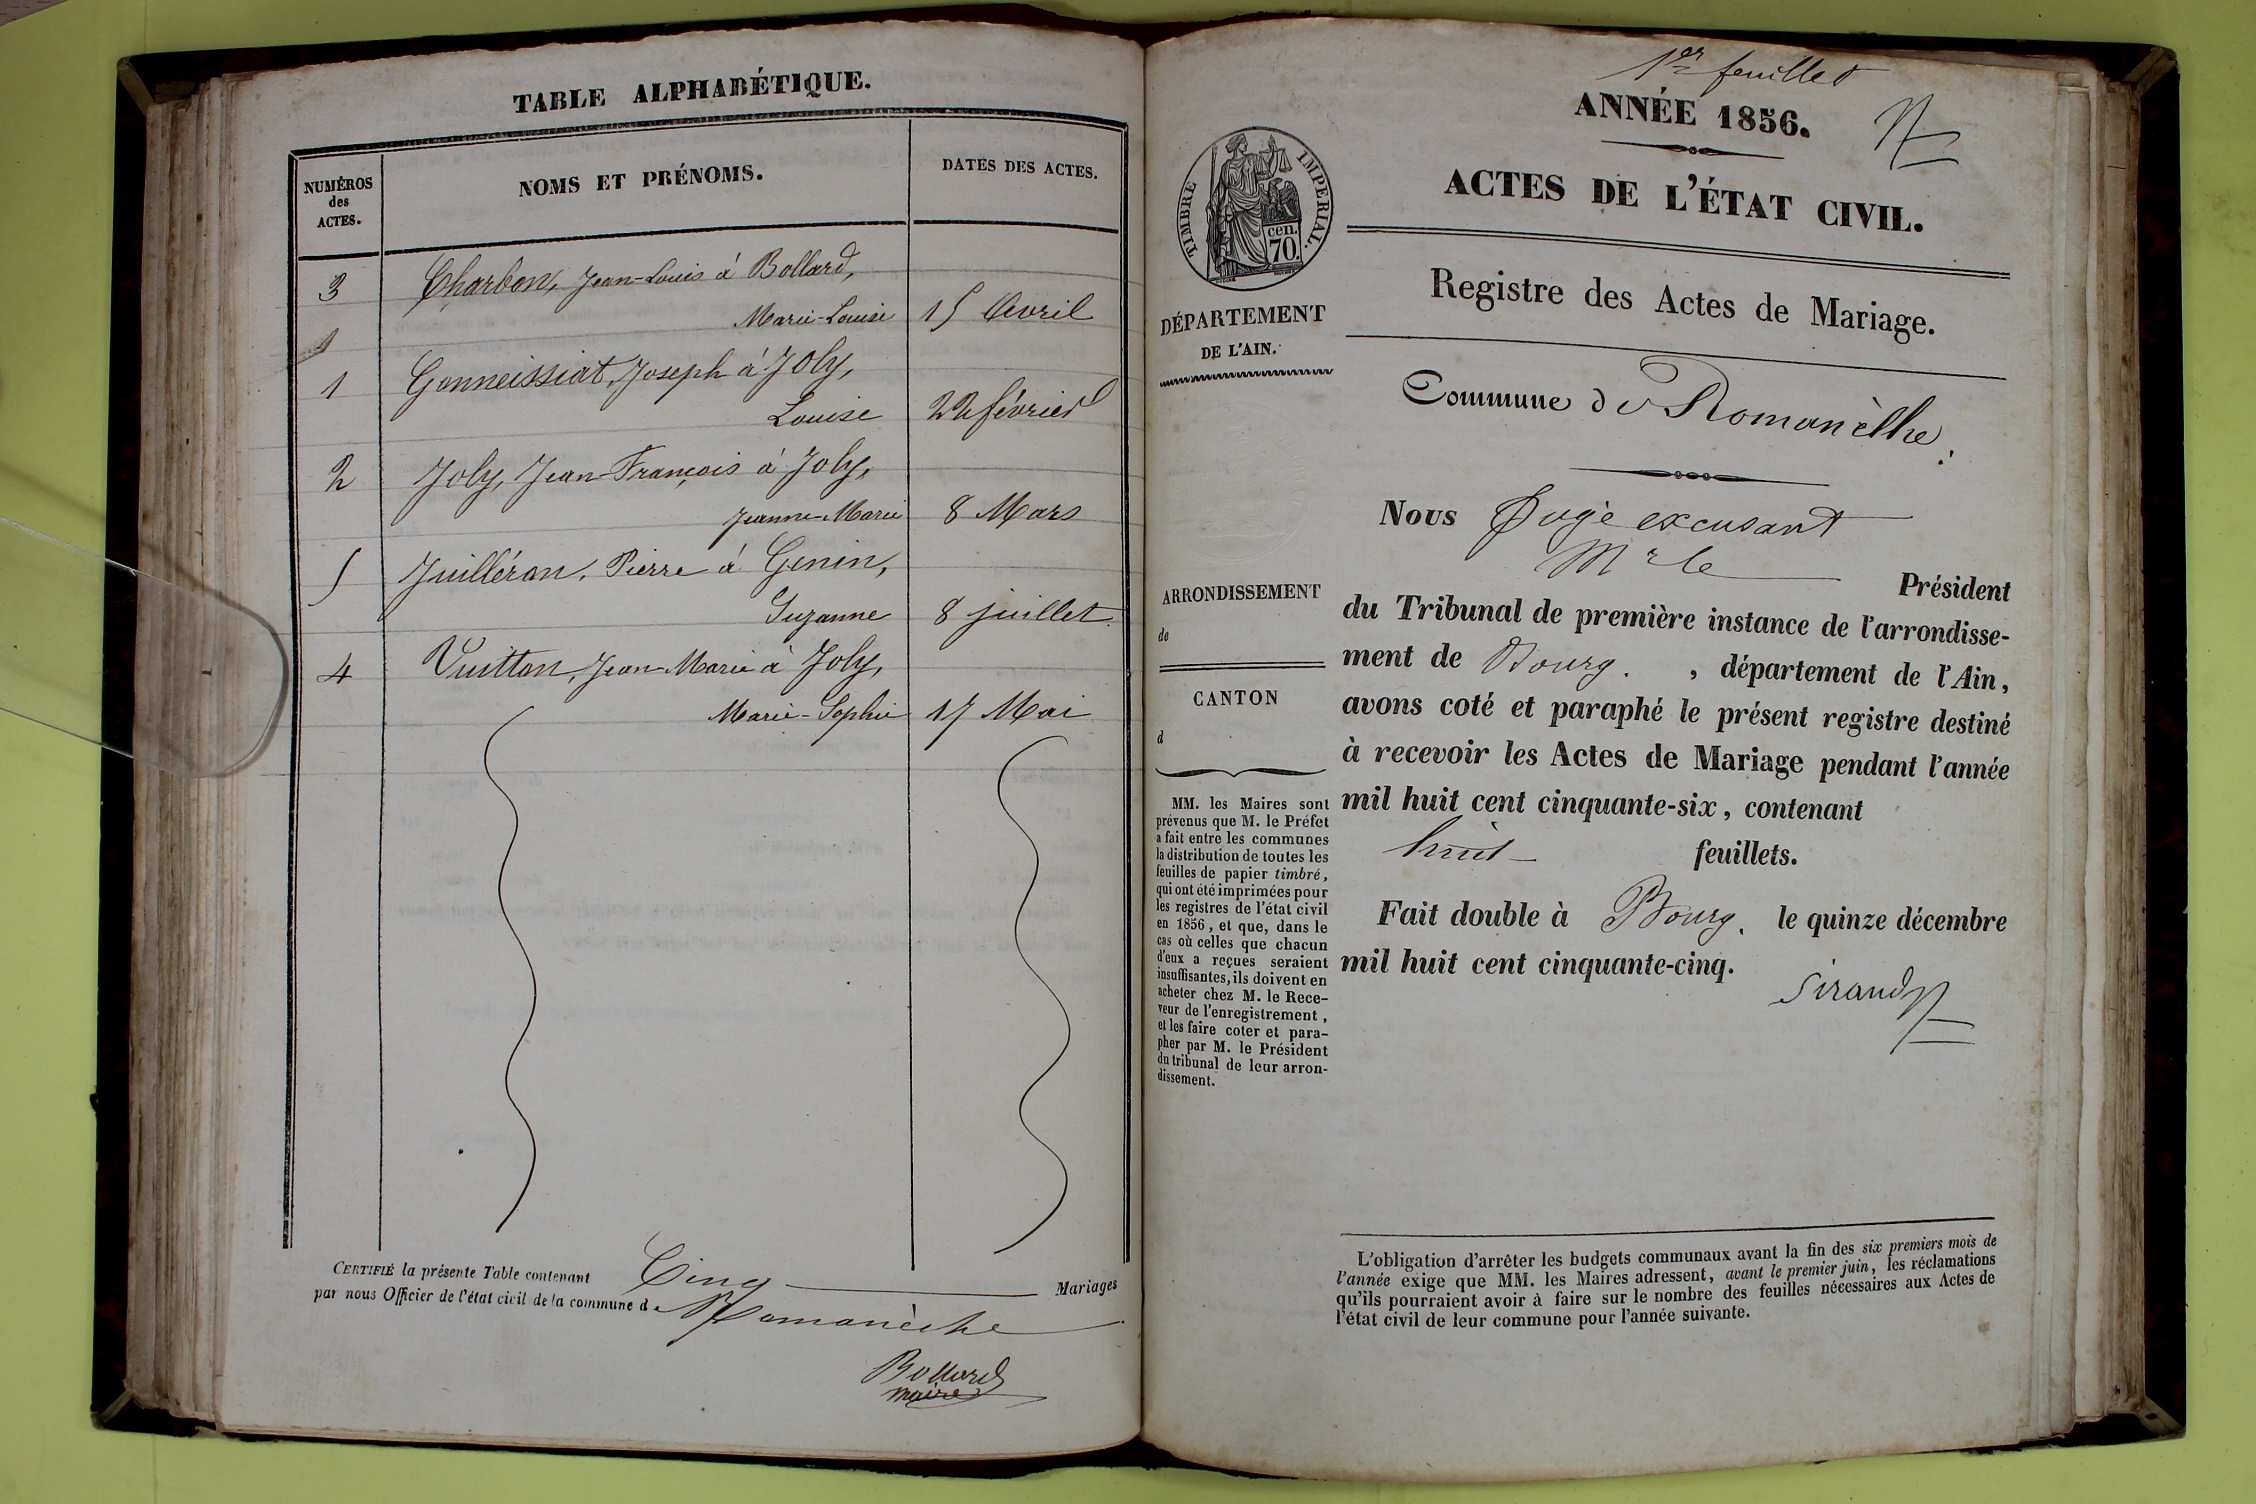 TABLE ALPHABÉTIQUE.
NUMÉROS
des
ACTES.
NOMS ET PRÉNOMS.
DATES DES ACTES.
3 Charbon, Jean-Louis à Bollard,
Marie-Louise 15 Avril
1 Gonneissiat, Joseph à Joly,
Louise 22 février
2 Joly, Jean-François à Joly,
Jeanne-Marie 8 Mars
5 Juilléron, Pierre à Genin,
Suzanne 8 juillet.
4 Vuitton, Jean-Marie à Joly,
Marie-Sophie 17 Mai
CERTIFIÉ la présente Table contenant Cinq Mariages
par nous Officier de l'état civil de la commune de Romanèche
Bollard
maire
1er feuillet
ANNÉE 1856.
ACTES DE L'ÉTAT CIVIL.
TIMBRE IMPERIAL.
cen.
70.
Registre des Actes de Mariage.
DÉPARTEMENT
DE L'AIN.
Commune de Romanèche.
Nous Juge excusant
Mr le Président
du Tribunal de première instance de l'arrondisse-
ment de Bourg. , département de l'Ain,
avons coté et paraphé le présent registre destiné
à recevoir les Actes de Mariage pendant l'année
mil huit cent cinquante-six, contenant
huit feuillets.
Fait double à Bourg. le quinze décembre
mil huit cent cinquante-cinq.
Sirand
ARRONDISSEMENT
de
CANTON
d
MM. les Maires sont
prévenus que M. le Préfet
a fait entre les communes
la distribution de toutes les
feuilles de papier timbré,
qui ont été imprimées pour
les registres de l'état civil
en 1856, et que, dans le
cas où celles que chacun
d'eux a reçues seraient
insuffisantes, ils doivent en
acheter chez M. le Rece-
veur de l'enregistrement,
et les faire coter et para-
pher par M. le Président
du tribunal de leur arron-
dissement.
L'obligation d'arrêter les budgets communaux avant la fin des six premiers mois de
l'année exige que MM. les Maires adressent, avant le premier juin, les réclamations
qu'ils pourraient avoir à faire sur le nombre des feuilles nécessaires aux Actes de
l'état civil de leur commune pour l'année suivante.